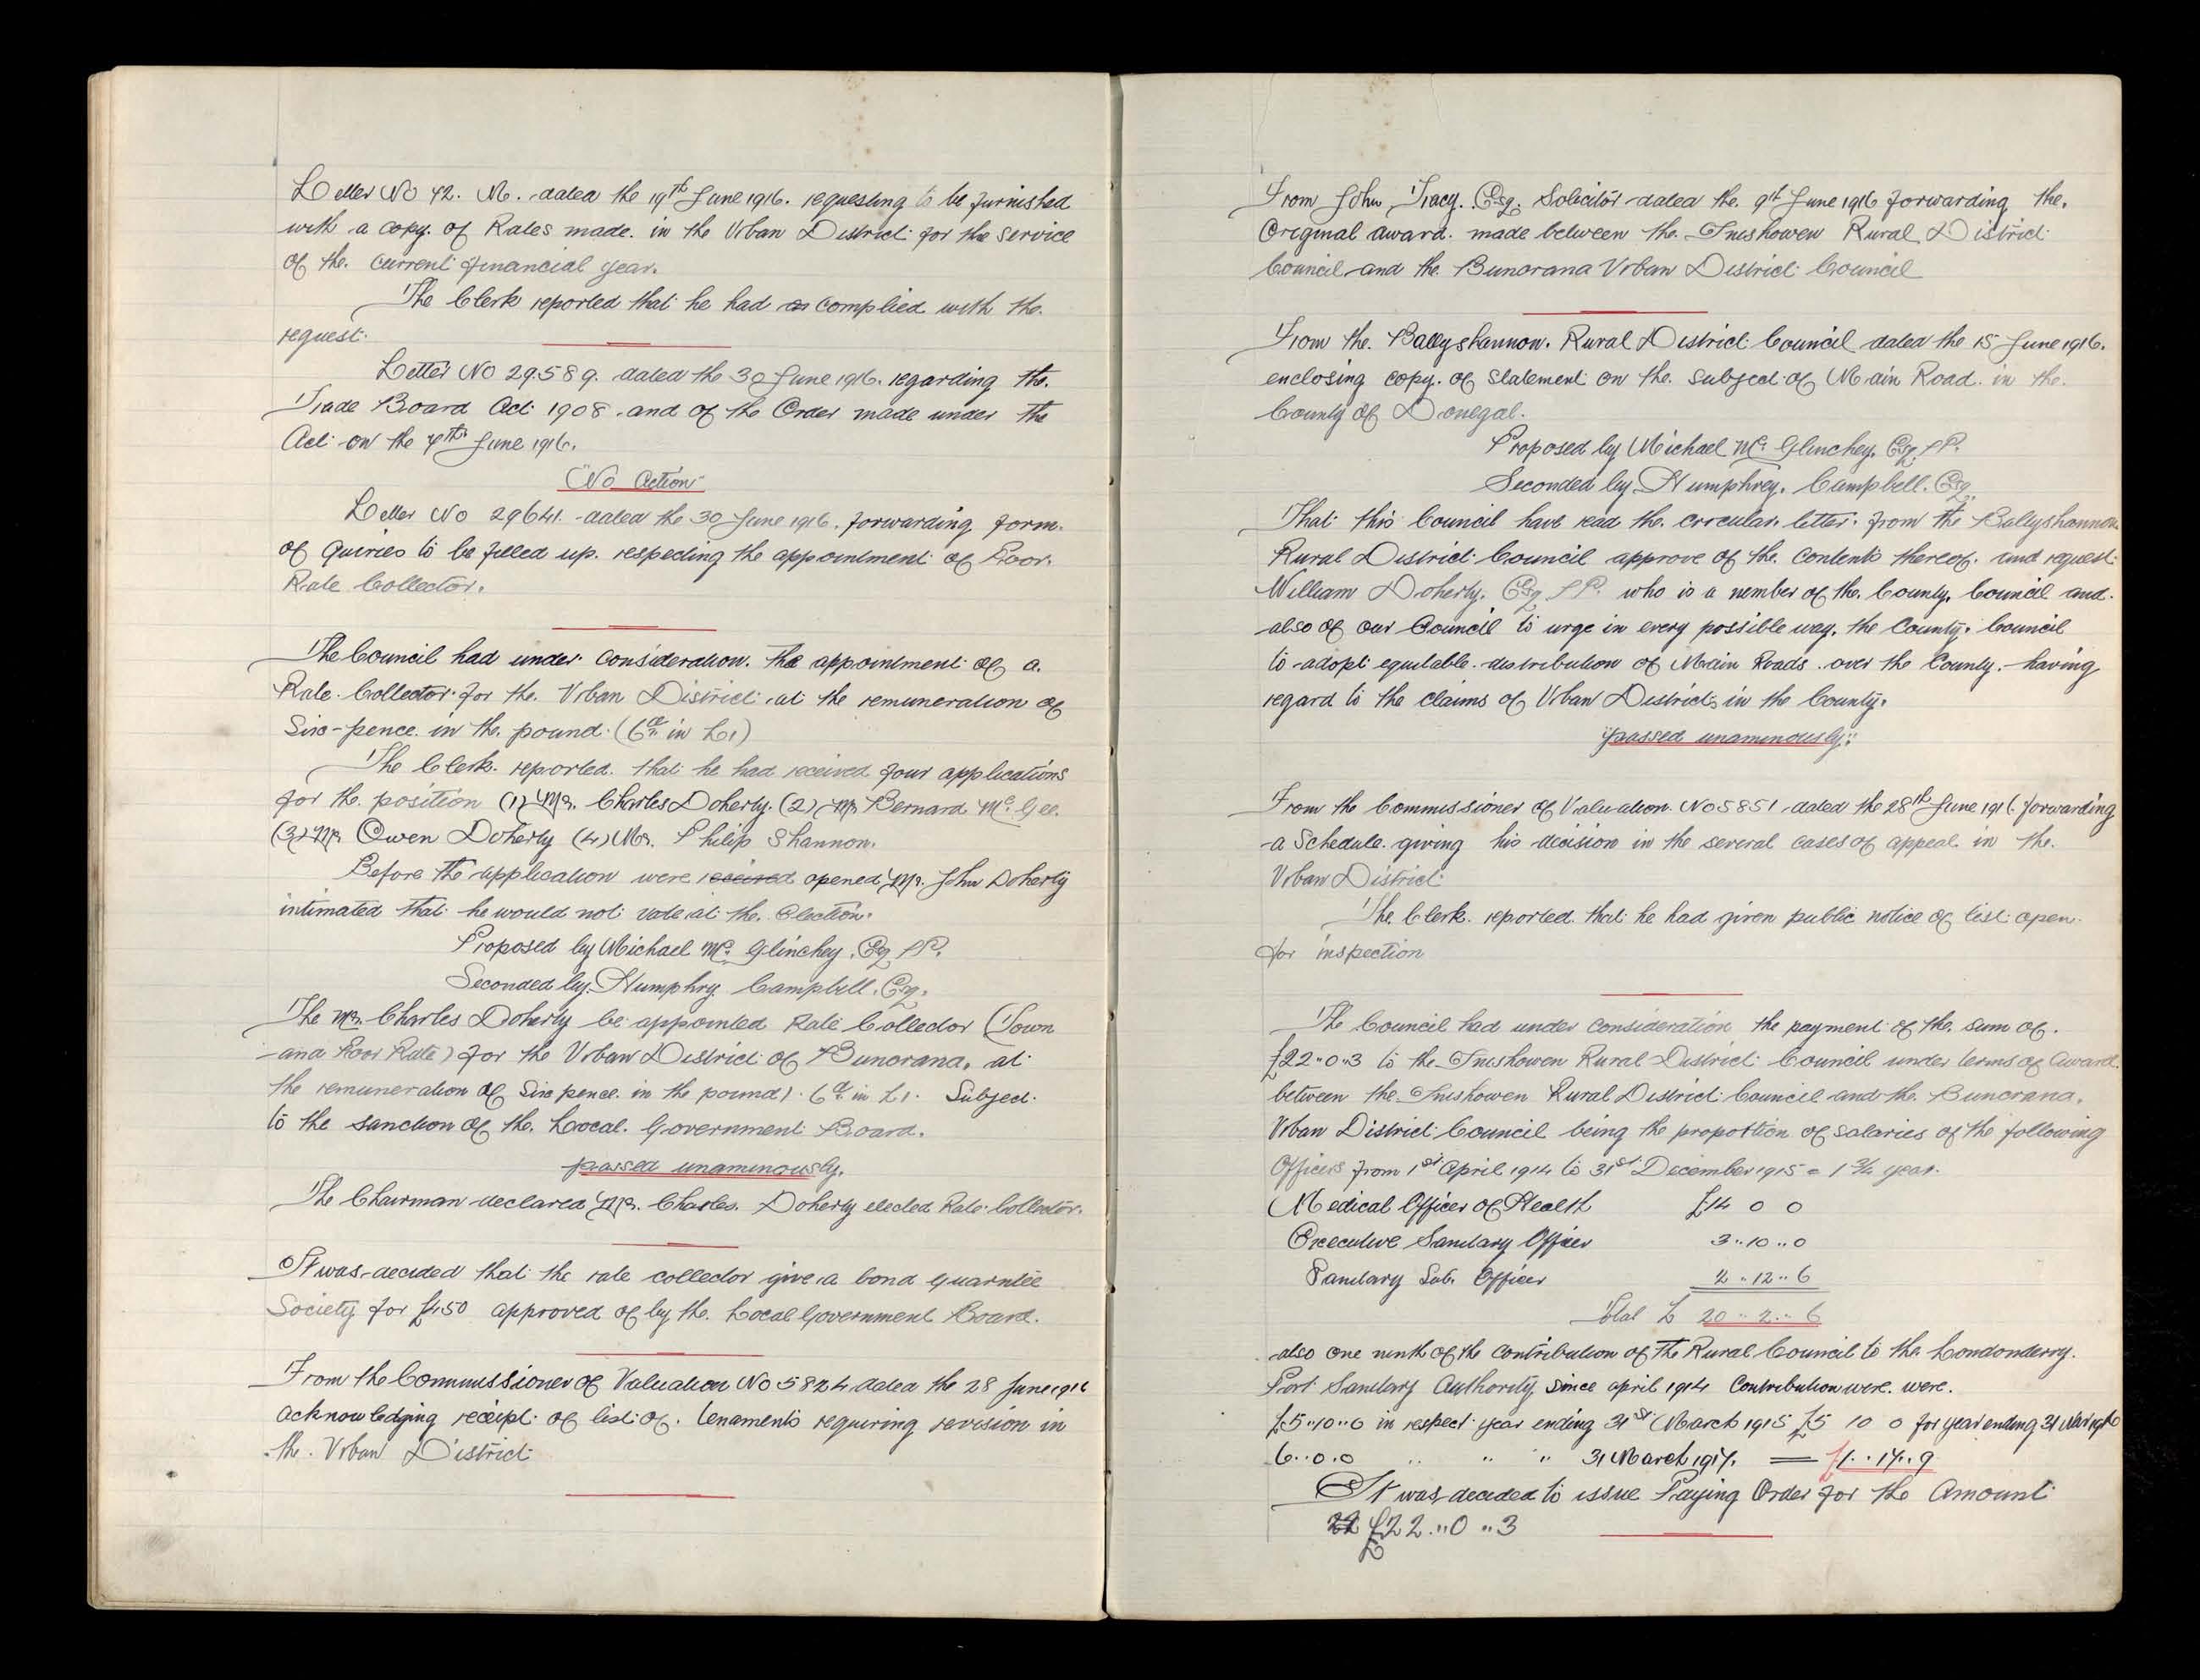 Letter No 42. M. dated the 19th June 1916. requesting to be furnished
with a copy. of Rates made. in the Urban District for the service
of the. current financial year.
The Clerk reported that he had as complied with the.
request.
Letter No 29.589. dated the 30 June 1916. regarding the.
Trade Board Act 1908. and of the Order made under the
Act on the 7th June 1916.
"No Action"
Letter No 29641. dated the 30 June 1916. forwarding form.
of Quiries to be filled up. respecting the appointment of Poor.
Rate Collector.
The Council had under consideration. the appointment of a.
Rate. Collector for the. Urban District. at the remuneration of
Six-pence. in the. pound. (6d. in £1)
The Clerk. reported. that he had received four applications
for the. position (1) Mr. Charles Doherty. (2) Mr Bernard McGee.
(3) Mr. Owen Doherty (4) Mr. Philip Shannon.
Before the application were received opened Mr. John Doherty
intimated that he would not vote at the. Election.
Proposed by Michael McGlinchey. Esq JP.
Seconded by. Humphry. Campbell. Esq.
The Mr. Charles Doherty be appointed Rate Collector (Town
and Poor Rate) for the Urban District of Buncrana. at
the remuneration of Six pence. in the pound). 6d. in £1. Subject
to the sanction of the. Local. Government Board.
passed unaminously.
The Chairman declared Mr. Charles. Doherty elected Rate Collector.
It was decided that the rate collector give a bond guarntee
Society for £150 approved of by the. Local Government Board.
From the Commissioner of Valuation No 5824 dated the 28 June 1916
acknowledging receipt of list of. tenaments requiring revision in
the. Urban District
From John Tracy. Esq. Solicitor dated the. 9th June 1916 forwarding the.
Original award. made between the. Inishowen Rural District
Council and the Buncrana Urban District Council
From the. Ballyshannon. Rural District Council dated the 15 June 1916.
enclosing copy. of statement on the. subject of Main Road. in the.
County of Donegal.
Proposed by Michael McGlinchey. Esq. JP.
Seconded by Humphrey. Campbell. Esq.
That this Council have read the. circular. letter. from the Ballyshannon
Rural District Council approve of the. contents thereof. and request
William Doherty. Esq JP. who is a nember of the. County. Council and.
also of our Council to urge in every possible way. the County. Council
to adopt equitable. distribution of Main Roads. over the County. having
regard to the claims of Urban Districts in the County.
"passed unaminously".
From the Commissioner of Valuation. No 5851 dated the 28th June 1916 forwarding
a Schedule. giving his decision in the several cases of appeal. in the.
Urban District
The. Clerk. reported. that he had given public notice of list open.
for inspection
The Council had under consideration the payment of the. sum of.
£22"0"3 to the Inishowen Rural District Council under terms of Award.
between the Inishowen Rural District Council and the. Buncrana.
Urban District Council being the proportion of salaries of the following
Officers from 1st April 1914 to 31st December 1915 = 1 3/4 year.
Medical Officer of Health £14 0 0
Executive Sanitary Officer 3"10"0
Sanitary Sub. Officer 2"12"6
Total £ 20"2"6
also one ninth of the contribution of the Rural Council to the Londonderry.
Port Sanitary Authority since april 1914 Contribution were. were.
£5"10"0 in respect year ending 31st March 1915 £5 10 0 for year ending 31 Mar 1916
6"0.0 " " " 31 March 1917. = £1"17"9
It was decided to issue Paying Order for the Amount
22 £22"0"3